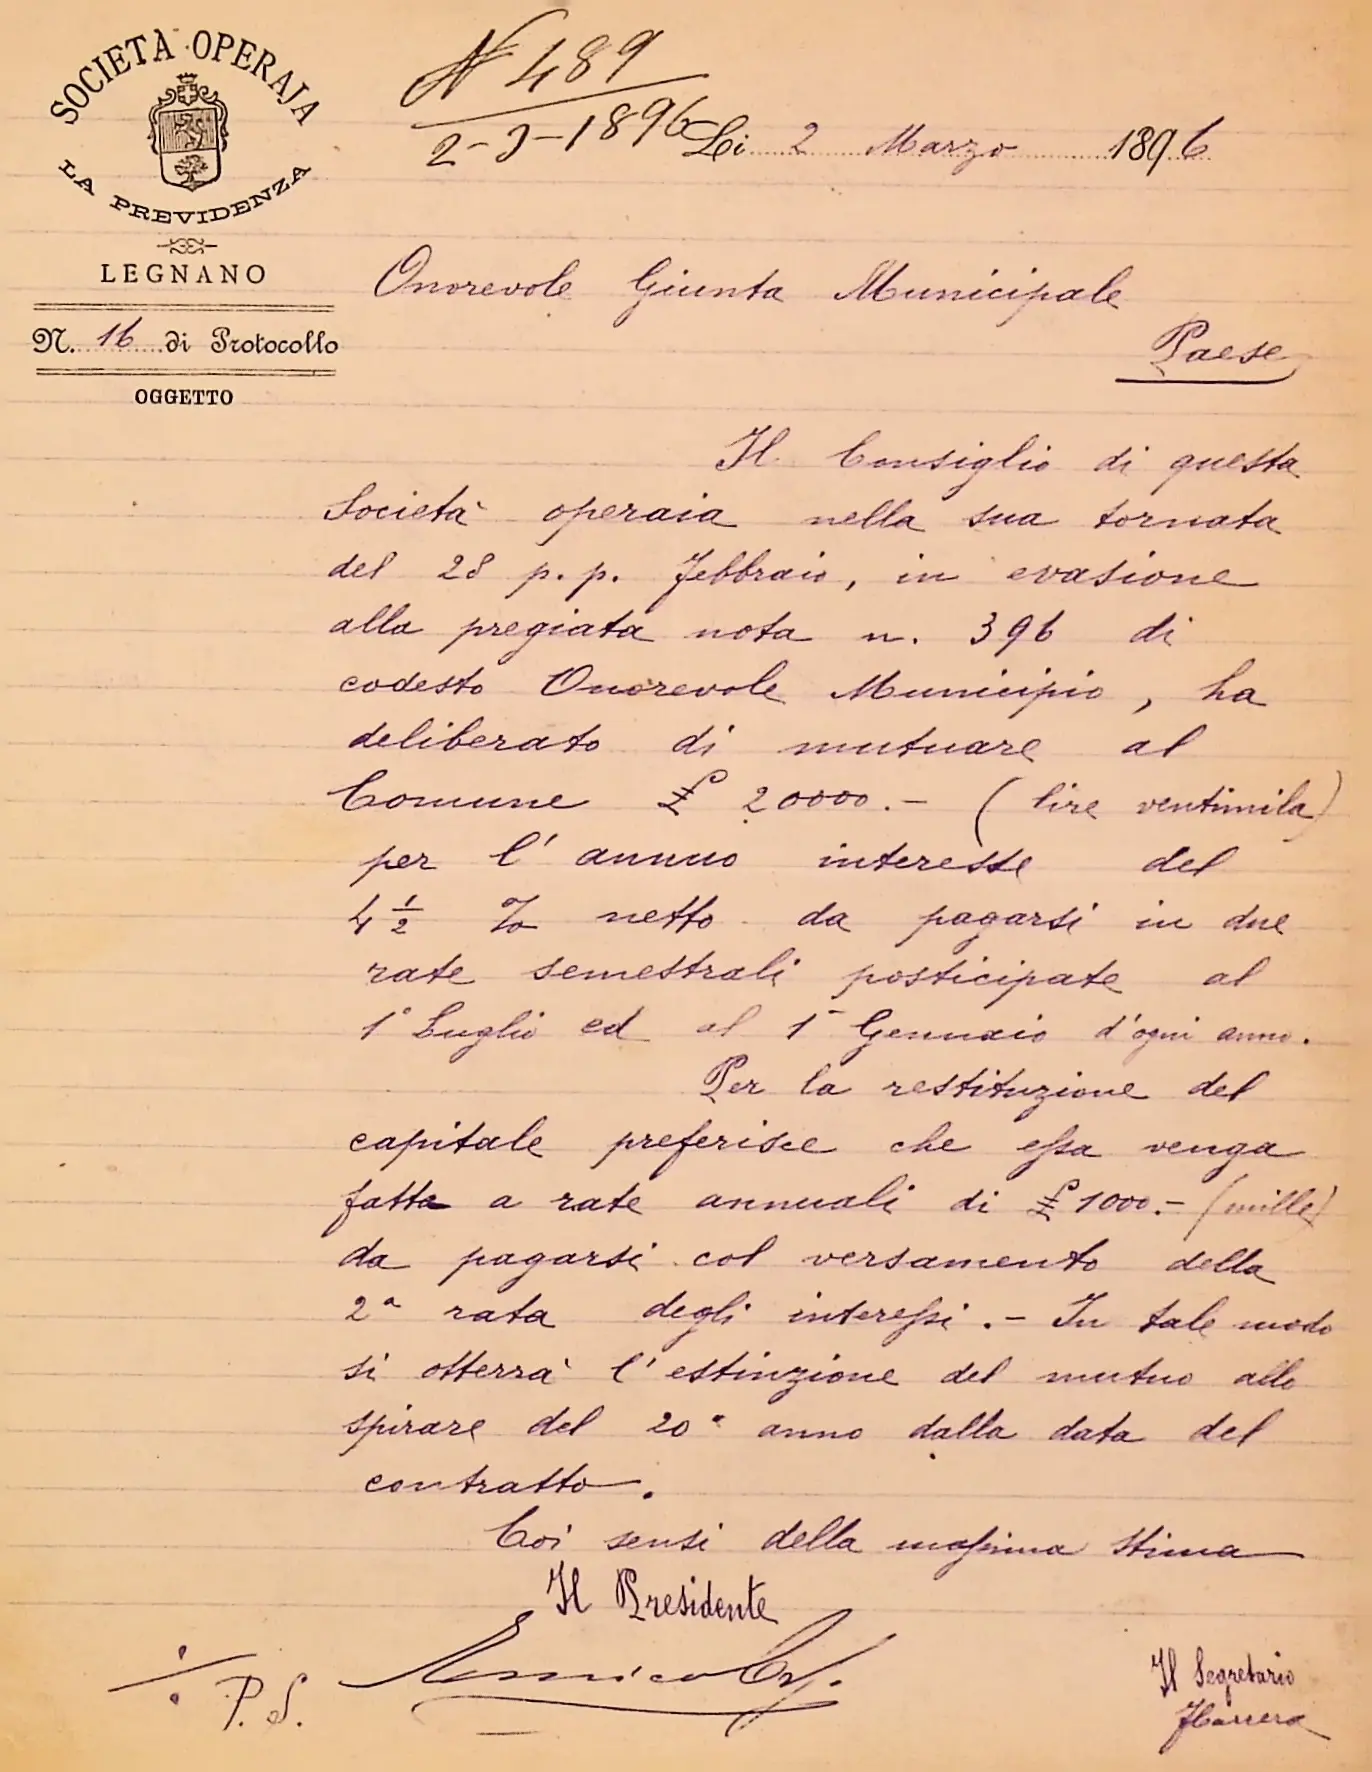 SOCIETÀ OPERAJA
LA PREVIDENZA
LEGNANO
N. 16 di Protocollo
OGGETTO
N 489
2-3-1896
Li 2 Marzo 1896
Onorevole Giunta Municipale
Paese
Il Consiglio di questa
Società operaia nella sua tornata
del 28 p. p. febbraio, in evasione
alla pregiata nota n. 396 di
codesto Onorevole Municipio, ha
deliberato di mutuare al
Comune £ 20000.- (lire ventimila)
per l'annuo interesse del
4 1/2 % netto da pagarsi in due
rate semestrali posticipate al
1° Luglio ed al 1° Gennaio d'ogni anno.
Per la restituzione del
capitale preferisce che essa venga
fatta a rate annuali di £ 1000.- (mille)
da pagarsi col versamento della
2a rata degli interessi.- In tale modo
si otterrà l'estinzione del mutuo allo
spirare del 20° anno dalla data del
contratto.
Coi sensi della massima stima
Il Presidente
P.S.
Il Segretario